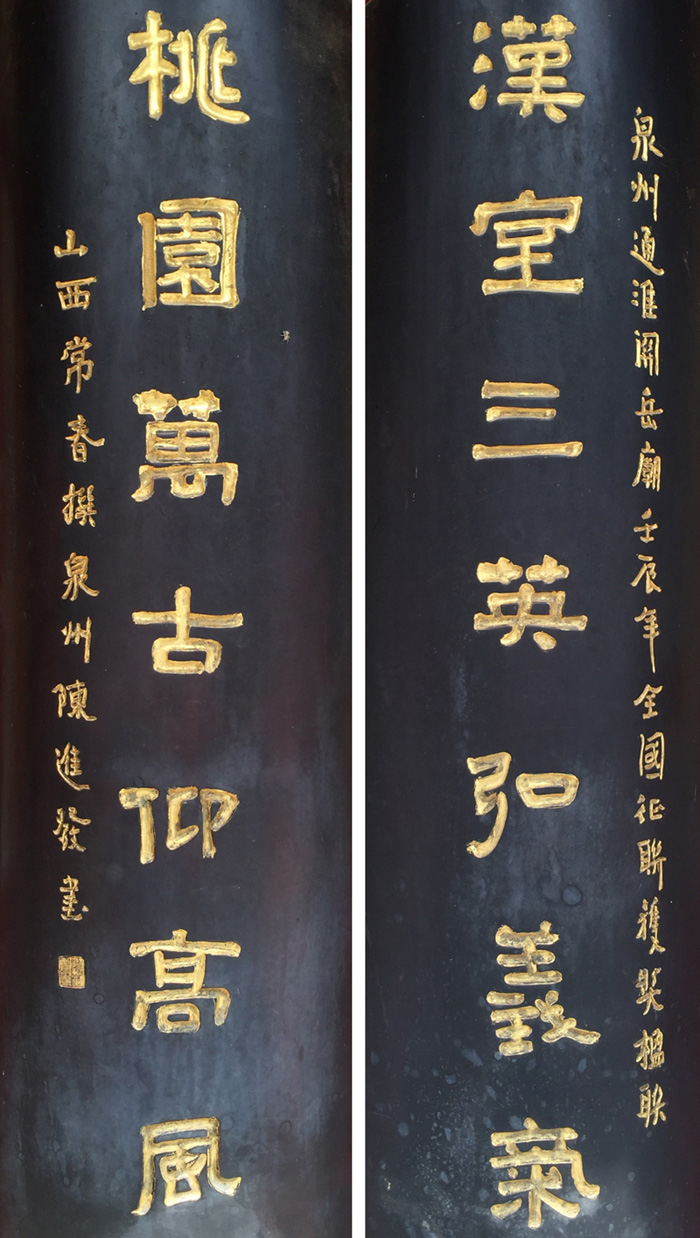 泉州通淮關岳廟壬辰年全國征聯獲奖楹联
漢室三英弘義氣
桃園萬古仰高風
山西常春撰泉州陳進發書